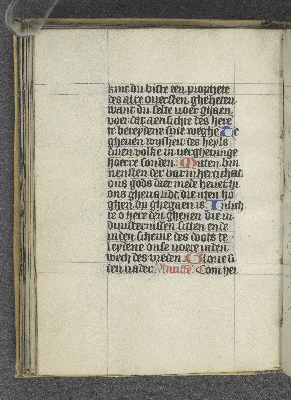 kint du biste een prophete
des alre ouersten gheheten
want du selte voer gaen
voer dat aensichte des here
te bereydene sine weghe Te
gheuen wijsheit des heyls
sinen volke in vergheuinge
hoerre sonden. Mitten bin
nensten der barmherticheit
ons gods daer mede heuet hi
ons ghevandt die wten ho
ghen op ghegaen is. Verlich
te o here den ghenen die in
duusternissen sitten ende
in den scheme des doots te
leydene onse voete in den
wech des vreden. Glorie si
den vader. Antiffe. Com hei